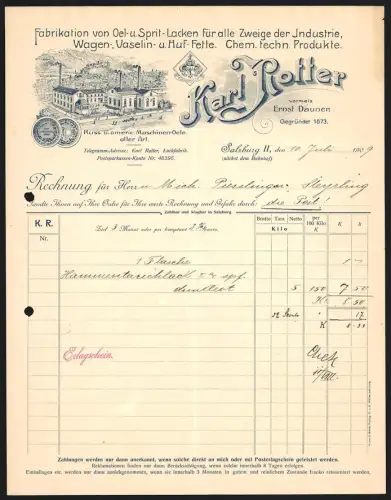 Fabrikation von Oel- u. Sprit-Lacken für alle Zweige der Industrie,
Wagen-, Vaselin- u. Huf-Fette. Chem. techn. Produkte.
Karl Rotter
vormals
Ernst Daunen
Gegründet 1873.
Russ. u. amerik. Maschinen-Oele
aller Art.
Telegramm-Adresse: Karl Rotter, Lackfabrik.
Postsparkassen-Konto Nr.
Salzburg II, den 10 Juli 1909
(nächst dem Bahnhof)
Rechnung für Herrn Mich.
Sandte Ihnen auf Ihre Ordre für Ihre werte Rechnung und Gefahr durch die Post!
Zahlbar und klagbar in Salzburg.
K. R.
Nr.
Ziel 3 Monat oder per comptant 2 % Sconto.
Brutto Tara Netto
Kilo
per 100 Kilo
K
K h
1 Flasche 1 -
5 150 7 50
K 8 50
2% Sconto 17
K 8 33
Erlagschein.
Zahlungen werden nur dann anerkannt, wenn solche direkt an mich oder mit Posterlagschein geleistet werden.
Reklamationen finden nur dann Berücksichtigung, wenn solche innerhalb 8 Tagen erfolgen.
Emballagen etc. werden nur dann zurückgenommen, wenn sie innerhalb 3 Monaten in gutem und reinlichem Zustande franko retourniert werden.